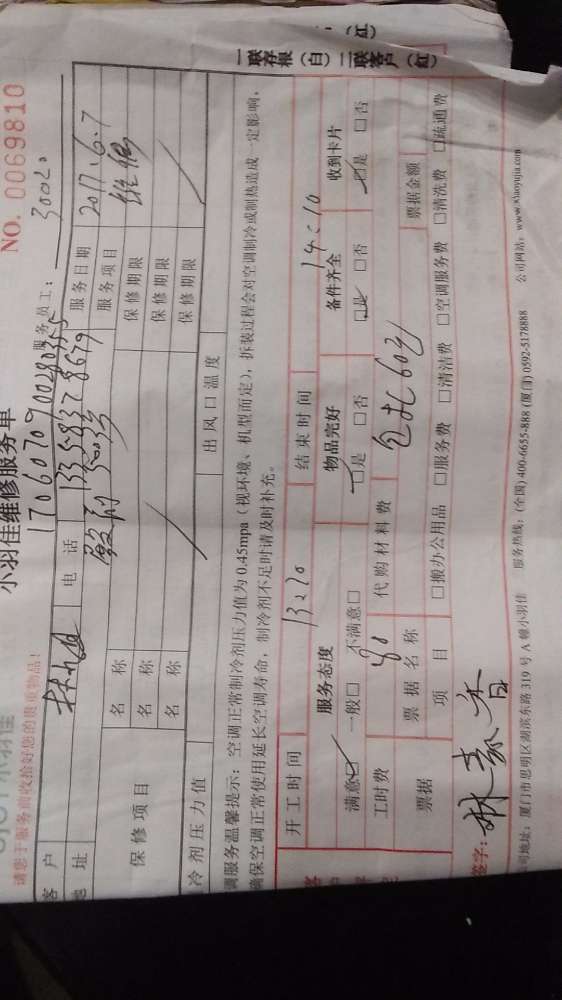 小羽佳维修服务单
NO. 0069810
请您于服务前收拾好您的贵重物品!
1706070900280355
服务员工: 30020
客户 电话 13358378679 服务日期 2017.6.7
地址 服务项目 维修
保修项目
名称 保修期限
名称 保修期限
名称 保修期限
冷剂压力值 出风口温度
调服务温馨提示: 空调正常制冷剂压力值为0.45mpa(视环境、机型而定),拆装过程会对空调制冷或制热造成一定影响,
确保空调正常使用延长空调寿命,制冷剂不足时请及时补充。
一联存根(白) 二联客户(红)
(红)
开工时间 13:20 结束时间 14:10
服务态度 物品完好 备件齐全 收到卡片
满意☑ 一般□ 不满意□ ☑是 □否 ☑是 □否 ☑是 □否
工时费 80 代购材料费 60元
票据 票据名称 票据金额
项目 □搬办公用品 □服务费 □清洁费 □空调服务费 □清洗费 □疏通费
签字: 林素香
公司地址: 厦门市思明区湖滨东路319号A幢小羽佳 服务热线: (全国) 400-6655-888 (厦门) 0592-5178888 公司网站: www.xiaoyujia.com